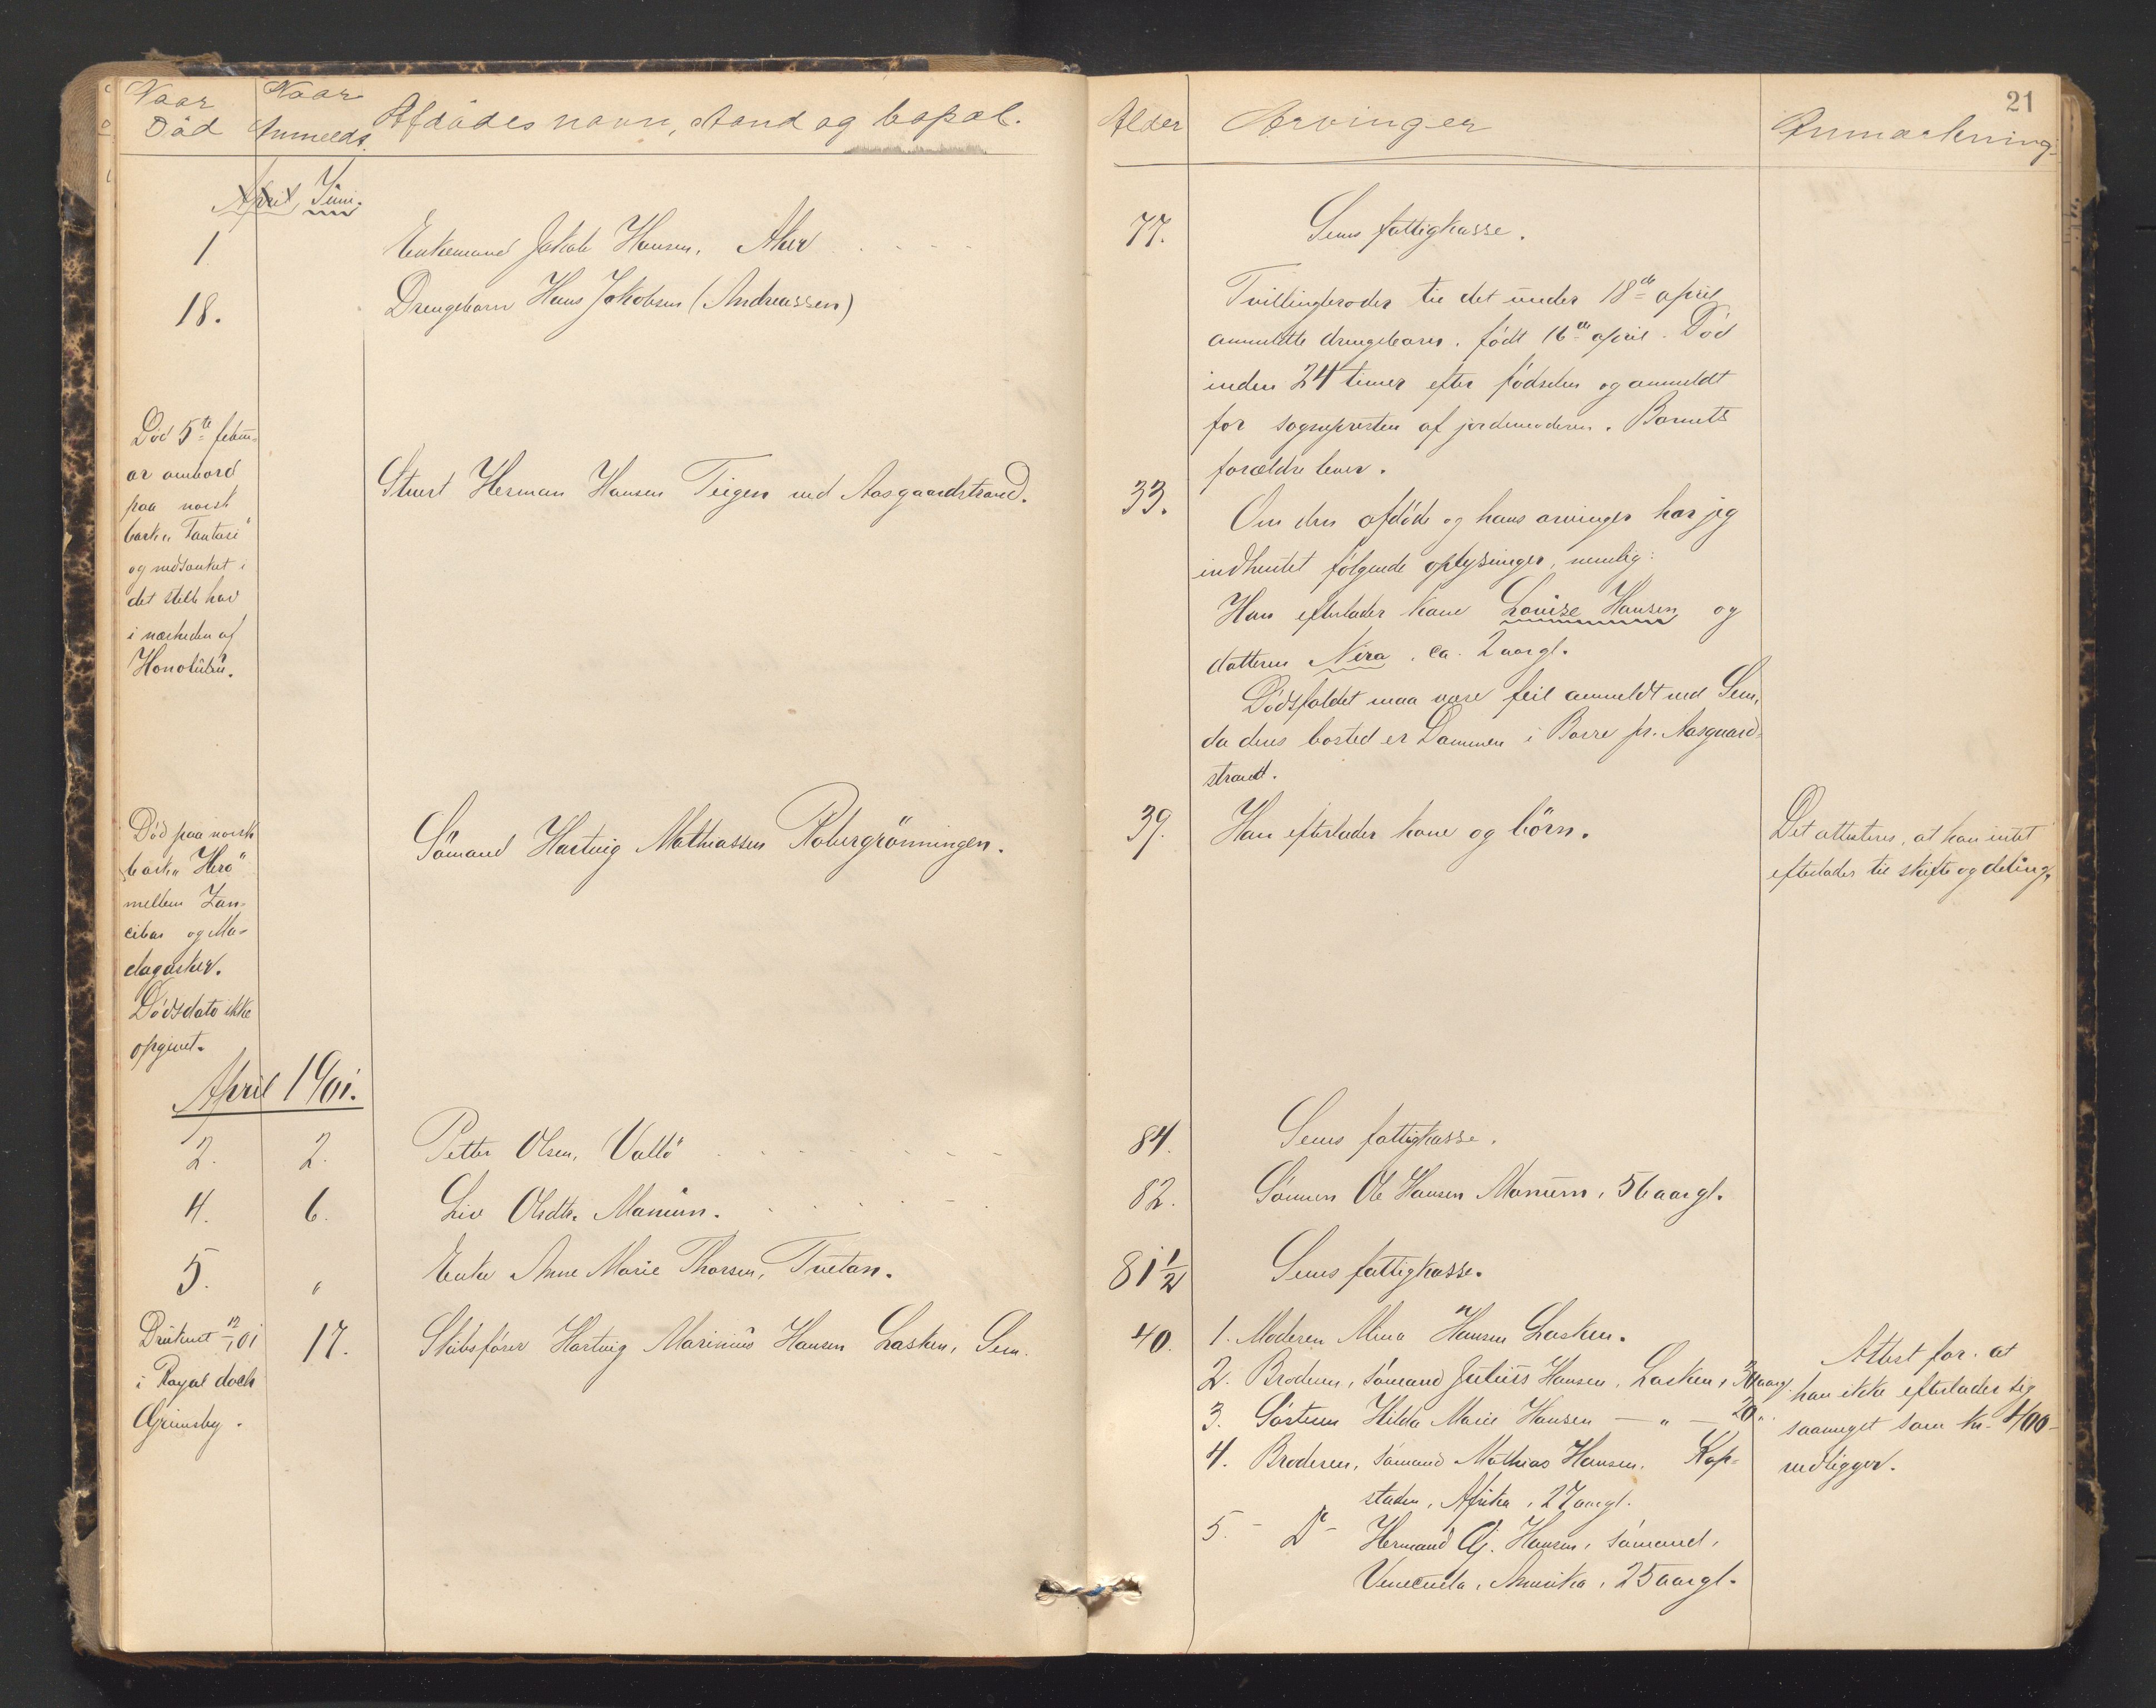 Naar
Død
Naar
Anmeldt.
Afdødes navn, stand og bopæl.
April Juni.
1
Enkemand Jakob Hansen, Aker
18.
Drengebarn Hans Jakobsen (Andreassen)
Død 5te febru-
ar ombord
paa norsk
bark „Fantasi"
og nedsænket i
det stille hav
i nærheden af
Honolulu.
Stuert Herman Hansen Teigen ved Aasgaardstrand.
Død paa norsk
bark „Hero"
mellem Zan-
cibar og Ma-
dagasker.
Dødsdato ikke
opgivet.
Sømand Hartvig Mathiassen Robergrønningen.
April 1901.
2. 2. Petter Olsen, Vallø
4. 6. Liv Olsdtr. Manum.
5. " Enke Anne Marie Thorsen, Tvetan.
Druknet 12/4 01
i Royal dock
Grimsby.
17. Skibsfører Hartvig Marinius Hansen Lasken, Sem.
21
Alder
Arvinger
Anmærkning
77. Sems fattigkasse.
Tvillingbroder til det under 18de april
anmeldte drengebarn, født 16de april. Død
inden 24 timer efter fødselen og anmeldt
for sognepresten af jordemoderen. Barnets
forældre lever.
33. Om den afdøde og hans arvinger har jeg
indhentet følgende oplysninger, nemlig:
Han efterlader kone Lovise Hansen og
datteren Nira, ca. 2 aar gl.
Dødsfaldet maa være feil anmeldt ved Sem,
da deres bosted er Dammen i Borre pr. Aasgaard-
strand.
39. Han efterlader kone og børn.
Det attesteres, at han intet
efterlader til skifte og deling.
84. Sems fattigkasse.
82. Sønnen Ole Hansen Manum, 56 aar gl.
81 1/2 Sems fattigkasse.
40. 1. Moderen Mina Hansen Lasken.
2. Broderen, sømand Julius Hansen, Lasken, aar gl.
3. Søsteren Hilda Marie Hansen — „ — 20 "
4. Broderen, sømand Mathias Hansen, Kap-
staden, Afrika, 27 aar gl.
5. - Do - Hermand Gj. Hansen, sømand,
Venezuela, Amerika, 25 aar gl.
Attest for at
han ikke efterlader sig
saameget som kr. 400-
vedligger.